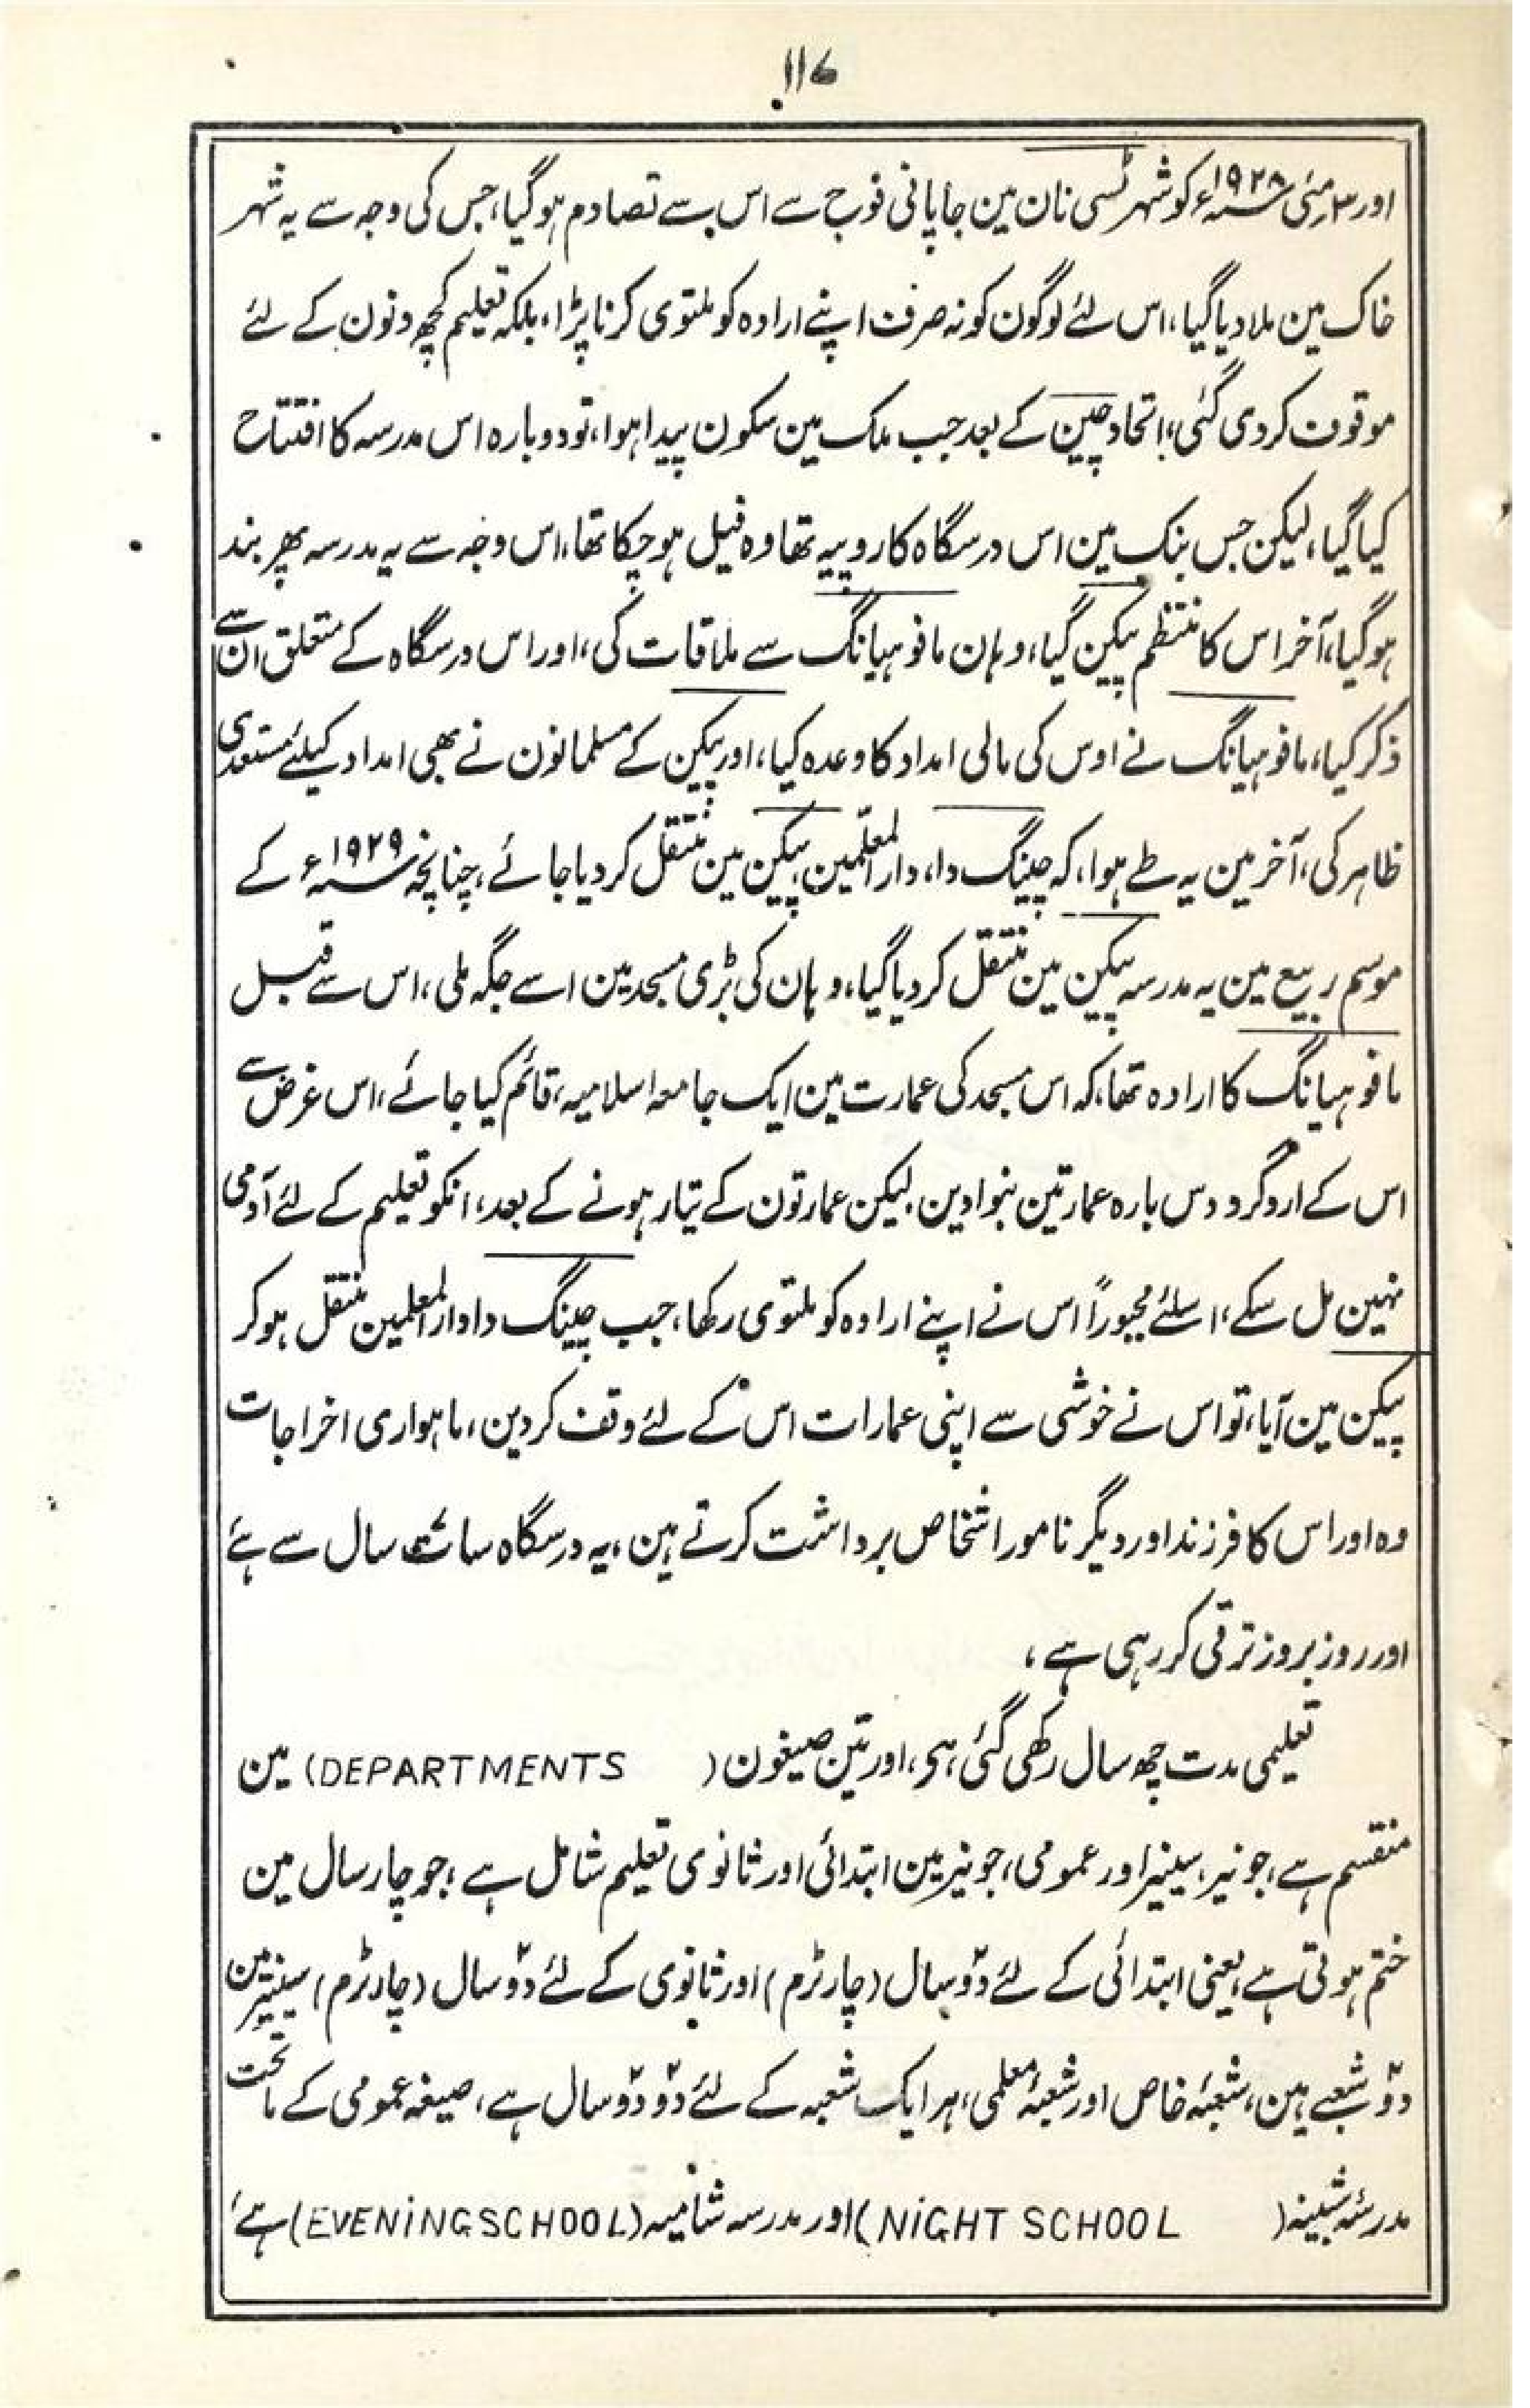 ۱۱۷
اور ۳ مئی ۱۹۲۸ء کو شہر ٹسی نان مین جاپانی فوج سے اس سے تصادم ہو گیا، جس کی وجہ سے یہ شہر
خاک مین ملا دیا گیا، اس لئے لوگون کو نہ صرف اپنے ارادہ کو ملتوی کرنا پڑا، بلکہ تعلیم کچھ دنون کے لئے
موقوف کر دی گئی، اتحاد چین کے بعد جب ملک مین سکون پیدا ہوا، تو دوبارہ اس مدرسہ کا افتتاح
کیا گیا، لیکن جس بنک مین اس درسگاہ کا روپیہ تھا وہ فیل ہو چکا تھا، اس وجہ سے یہ مدرسہ پھر بند
ہو گیا، آخر اس کا منتظم پیکن گیا، وہان مافوہیانگ سے ملاقات کی، اور اس درسگاہ کے متعلق ان سے
ذکر کیا، مافوہیانگ نے اوس کی مالی امداد کا وعدہ کیا، اور پیکن کے مسلمانون نے بھی امداد کیلئے مستعدی
ظاہر کی، آخر مین یہ طے ہوا، کہ چینگ دا، دار المعلّمین پیکن مین منتقل کر دیا جائے، چنانچہ ۱۹۲۹ء کے
موسم ربیع مین یہ مدرسہ پیکن مین منتقل کر دیا گیا، وہان کی بڑی مسجد مین اسے جگہ ملی، اس سے قبل
مافوہیانگ کا ارادہ تھا، کہ اس مسجد کی عمارت مین ایک جامعہ اسلامیہ، قائم کیا جائے، اس غرض سے
اس کے ارد گرد دس بارہ عمارتین بنوا دین، لیکن عمارتون کے تیار ہونے کے بعد، انکو تعلیم کے لئے آدمی
نہین مل سکے، اسلئے مجبوراً اس نے اپنے ارادہ کو ملتوی رکھا، جب چینگ دا دار المعلمین منتقل ہو کر
پیکن مین آیا، تو اس نے خوشی سے اپنی عمارات اس کے لئے وقف کر دین، ماہواری اخراجات
وہ اور اس کا فرزند اور دیگر نامور اشخاص برداشت کرتے ہین، یہ درسگاہ سات سال سے ہے
اور روز بروز ترقی کر رہی ہے،
تعلیمی مدت چھ سال رکھی گئی ہی، اور تین صیغون (DEPARTMENTS) مین
منقسم ہے، جونیر، سینیر اور عمومی، جونیر مین ابتدائی اور ثانوی تعلیم شامل ہے، جو چار سال مین
ختم ہوتی ہے، یعنی ابتدائی کے لئے دو سال (چار ٹرم) اور ثانوی کے لئے دو سال (چار ٹرم) سینیر مین
دو شعبے ہین، شعبۂ خاص اور شعبۂ معلمی، ہر ایک شعبہ کے لئے دو دو سال ہے، صیغہ عمومی کے ماتحت
مدرسۂ شبینہ (NIGHT SCHOOL) اور مدرسہ شامیہ (EVENING SCHOOL) ہے